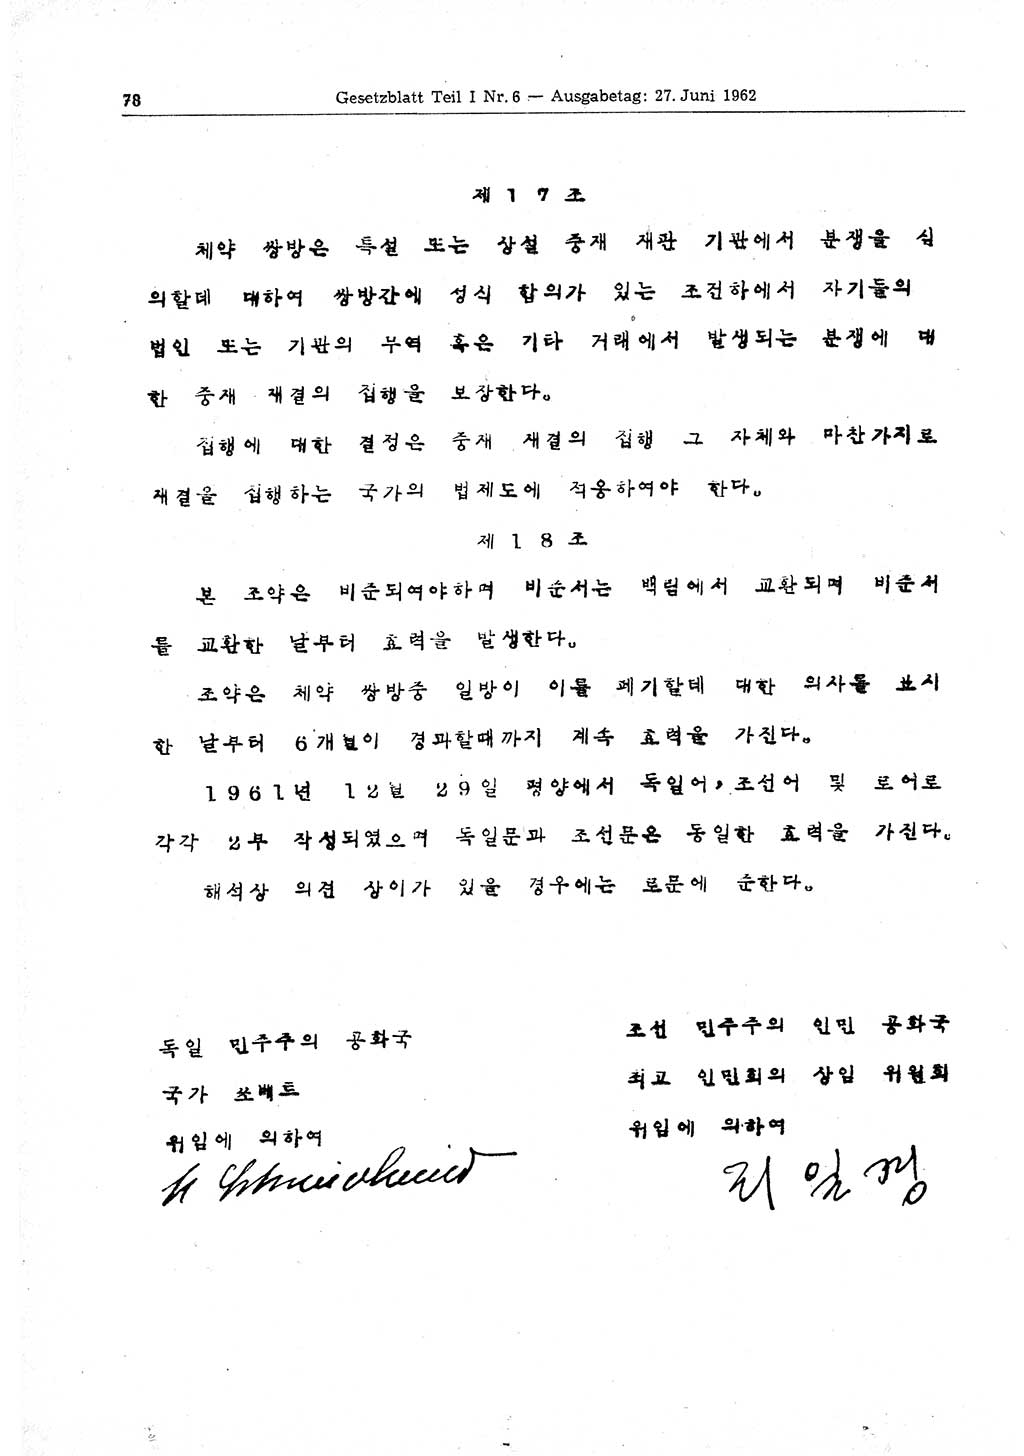 78
Gesetzblatt Teil I Nr. 6 — Ausgabetag: 27. Juni 1962
제 1 7 조
체약 쌍방은 특설 또는 상설 중재 재판 기관에서 분쟁을 심
의할데 대하여 쌍방간에 성식 합의가 있는 조건하에서 자기들의
법인 또는 기관의 무역 혹은 기타 거래에서 발생되는 분쟁에 대
한 중재 재결의 집행을 보장한다。
집행에 대한 결정은 중재 재결의 집행 그 자체와 마찬가지로
재결을 집행하는 국가의 법제도에 적응하여야 한다。
제 1 8 조
본 조약은 비준되여야하며 비준서는 백림에서 교환되며 비준서
를 교환한 날부터 효력을 발생한다。
조약은 체약 쌍방중 일방이 이를 페기할데 대한 의사를 표시
한 날부터 6개월이 경과할때까지 계속 효력을 가진다。
1961년 12월 29일 평양에서 독일어, 조선어 및 로어로
각각 2부 작성되였으며 독일문과 조선문은 동일한 효력을 가진다。
해석상 의견 상이가 있을 경우에는 로문에 준한다。
독일 민주주의 공화국
국가 쏘베트
위임에 의하여
조선 민주주의 인민 공화국
최고 인민회의 상임 위원회
위임에 의하여
리 일 경